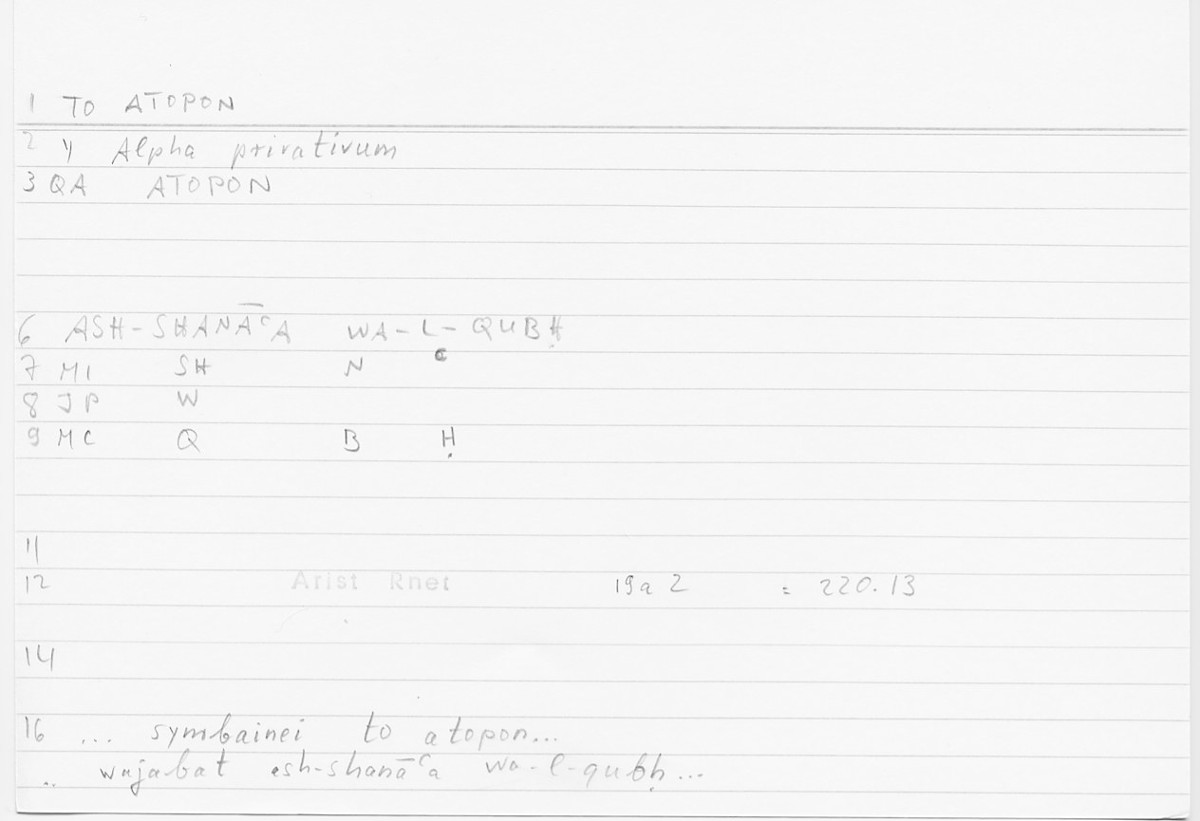 1 TO ATOPON
2 y Alpha privativum
3 QA ATOPON
6 ASH-SHANĀʿA WA-L-QUBḤ
7 MI SH N ʿ
8 JP W
9 MC Q B Ḥ
11
12 Arist Rhet 19a 2 = 220.13
14
16 ... symbainei to atopon...
.. wajabat ash-shanāʿa wa-l-qubḥ...